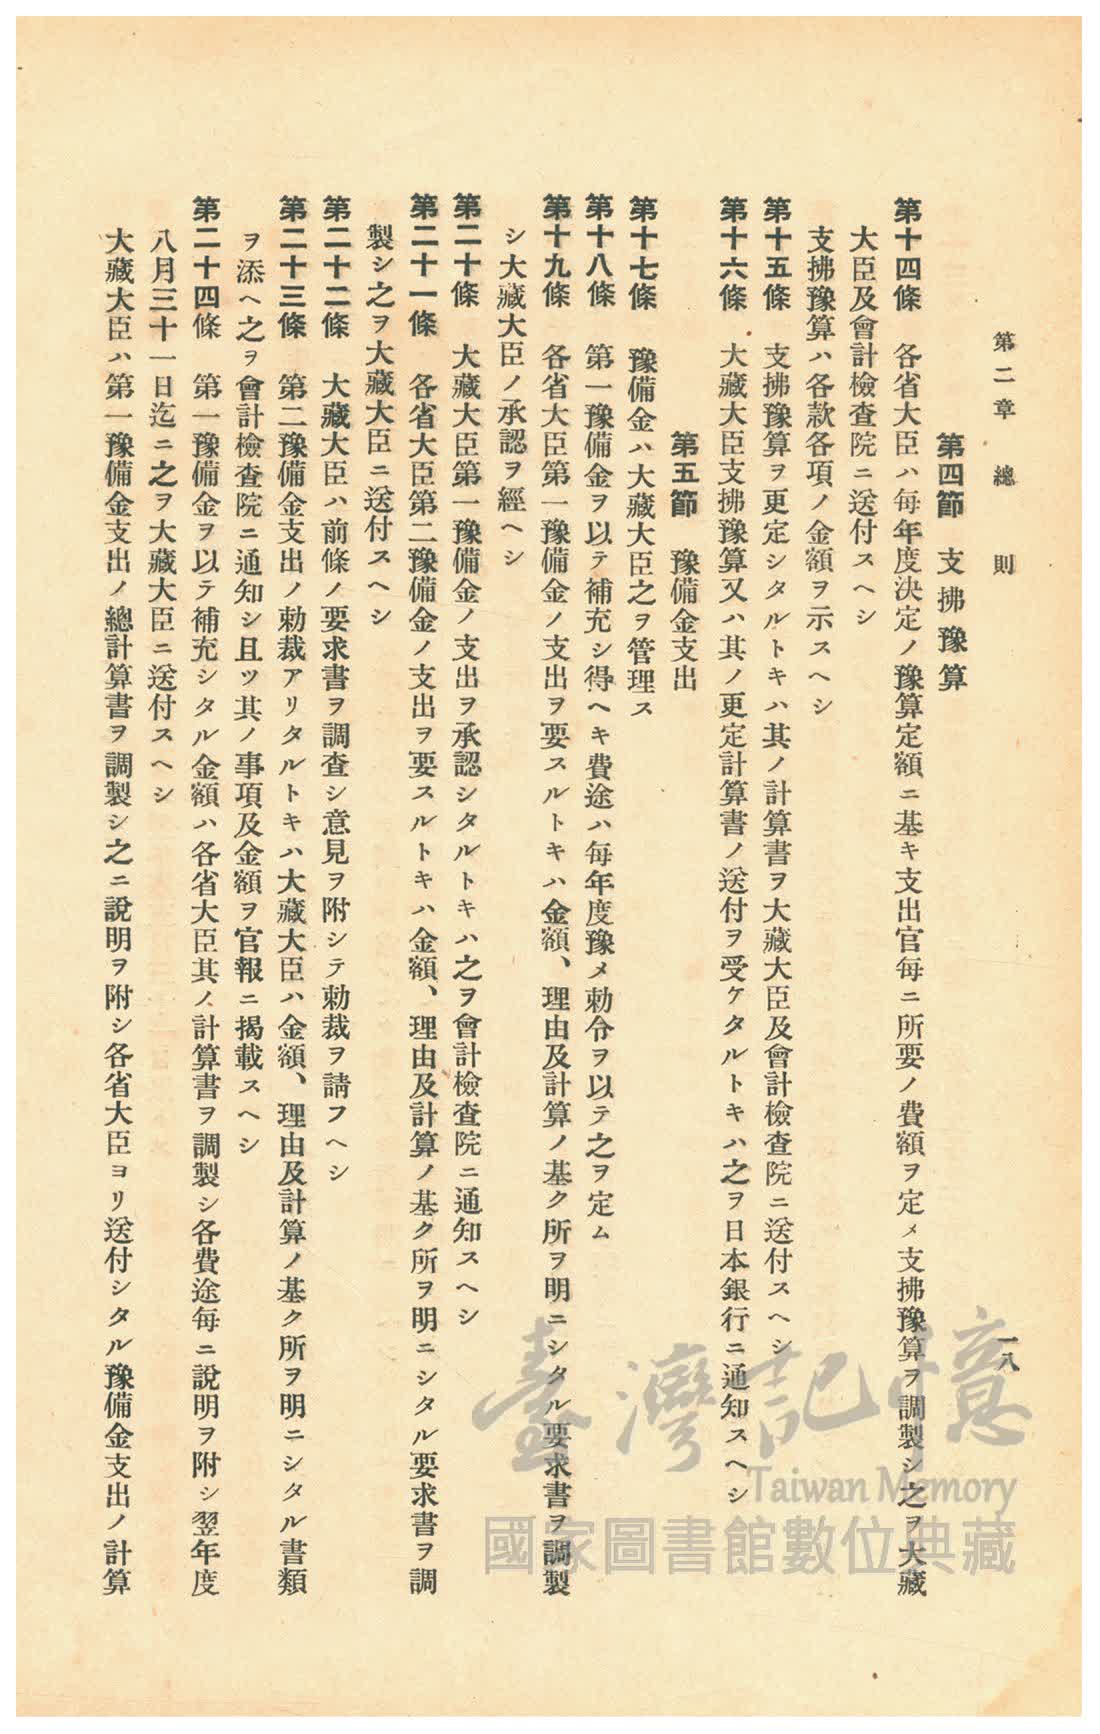 第二章　總　則
一八
第四節　支拂豫算
第十四條　各省大臣ハ每年度決定ノ豫算定額ニ基キ支出官每ニ所要ノ費額ヲ定メ支拂豫算ヲ調製シ之ヲ大藏
大臣及會計檢查院ニ送付スヘシ
支拂豫算ハ各款各項ノ金額ヲ示スヘシ
第十五條　支拂豫算ヲ更定シタルトキハ其ノ計算書ヲ大藏大臣及會計檢查院ニ送付スヘシ
第十六條　大藏大臣支拂豫算又ハ其ノ更定計算書ノ送付ヲ受ケタルトキハ之ヲ日本銀行ニ通知スヘシ
第五節　豫備金支出
第十七條　豫備金ハ大藏大臣之ヲ管理ス
第十八條　第一豫備金ヲ以テ補充シ得ヘキ費途ハ每年度豫メ勅令ヲ以テ之ヲ定ム
第十九條　各省大臣第一豫備金ノ支出ヲ要スルトキハ金額、理由及計算ノ基ク所ヲ明ニシタル要求書ヲ調製
シ大藏大臣ノ承認ヲ經ヘシ
第二十條　大藏大臣第一豫備金ノ支出ヲ承認シタルトキハ之ヲ會計檢查院ニ通知スヘシ
第二十一條　各省大臣第二豫備金ノ支出ヲ要スルトキハ金額、理由及計算ノ基ク所ヲ明ニシタル要求書ヲ調
製シ之ヲ大藏大臣ニ送付スヘシ
第二十二條　大藏大臣ハ前條ノ要求書ヲ調查シ意見ヲ附シテ勅裁ヲ請フヘシ
第二十三條　第二豫備金支出ノ勅裁アリタルトキハ大藏大臣ハ金額、理由及計算ノ基ク所ヲ明ニシタル書類
ヲ添ヘ之ヲ會計檢查院ニ通知シ且ツ其ノ事項及金額ヲ官報ニ揭載スヘシ
第二十四條　第一豫備金ヲ以テ補充シタル金額ハ各省大臣其ノ計算書ヲ調製シ各費途每ニ說明ヲ附シ翌年度
八月三十一日迄ニ之ヲ大藏大臣ニ送付スヘシ
大藏大臣ハ第一豫備金支出ノ總計算書ヲ調製シ之ニ說明ヲ附シ各省大臣ヨリ送付シタル豫備金支出ノ計算
臺灣記憶
Taiwan Memory
國家圖書館數位典藏